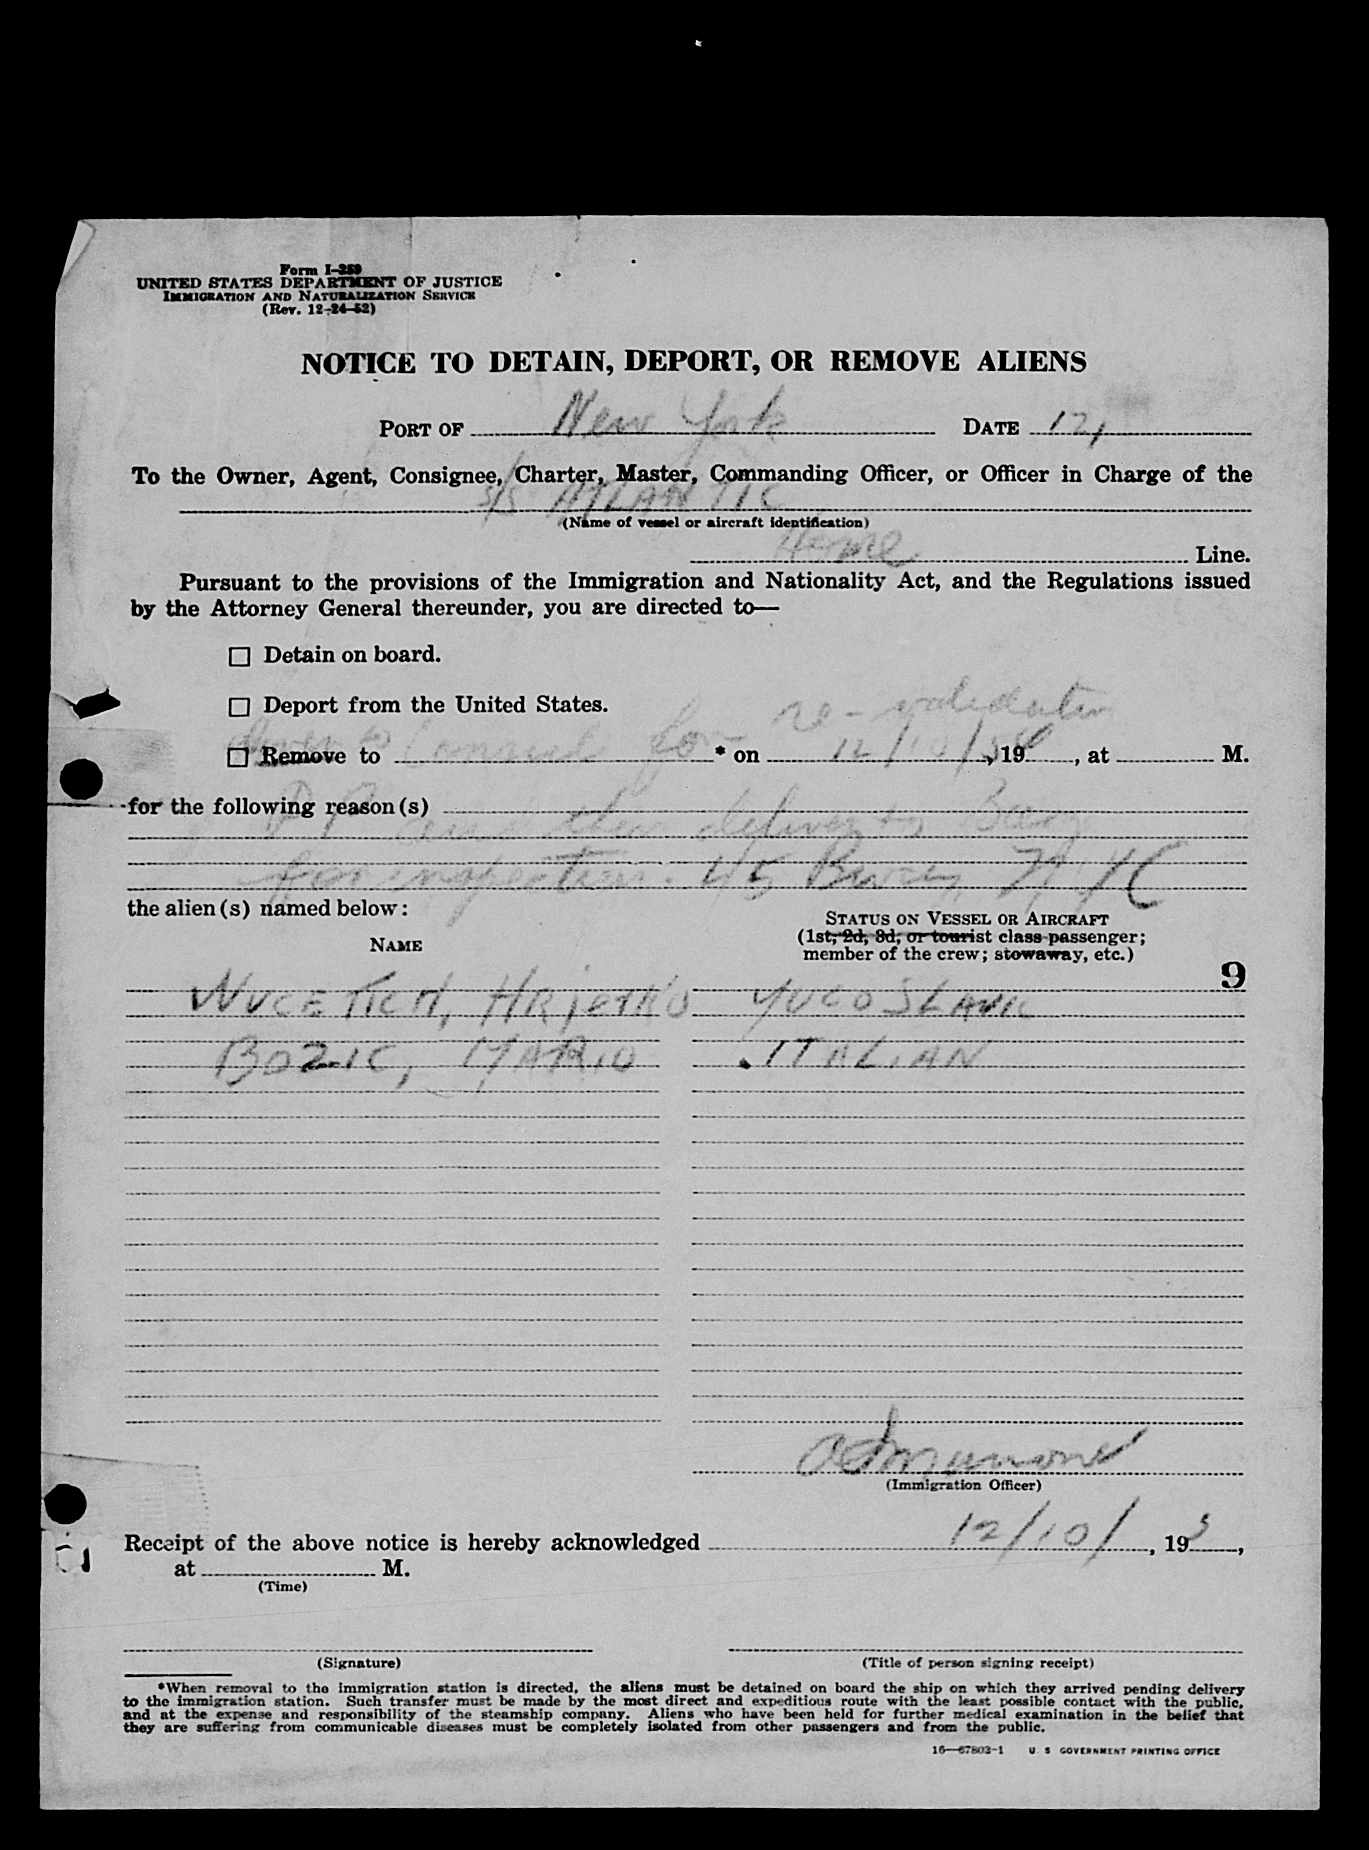 Form I-259
UNITED STATES DEPARTMENT OF JUSTICE
IMMIGRATION AND NATURALIZATION SERVICE
(Rev. 12-24-52)
NOTICE TO DETAIN, DEPORT, OR REMOVE ALIENS
PORT OF New York DATE 12/
To the Owner, Agent, Consignee, Charter, Master, Commanding Officer, or Officer in Charge of the
S/S ATLANTIC
(Name of vessel or aircraft identification)
Home Line.
Pursuant to the provisions of the Immigration and Nationality Act, and the Regulations issued
by the Attorney General thereunder, you are directed to—
☐ Detain on board.
☐ Deport from the United States.
☐ Remove to Consul for re-validation * on 12/10/ , 19 , at M.
for the following reason(s)
and then deliver to
for inspection. 45 Bway N.Y.C
the alien(s) named below:
NAME
STATUS ON VESSEL OR AIRCRAFT
(1st, 2d, 3d, or tourist class passenger;
member of the crew; stowaway, etc.)
9
YUGOSLAVIC
BOZIC, MARIO .ITALIAN
(Immigration Officer)
Receipt of the above notice is hereby acknowledged 12/10/ , 195 ,
at M.
(Time)
(Signature) (Title of person signing receipt)
*When removal to the immigration station is directed, the aliens must be detained on board the ship on which they arrived pending delivery
to the immigration station. Such transfer must be made by the most direct and expeditious route with the least possible contact with the public,
and at the expense and responsibility of the steamship company. Aliens who have been held for further medical examination in the belief that
they are suffering from communicable diseases must be completely isolated from other passengers and from the public.
16—67803-1 U. S. GOVERNMENT PRINTING OFFICE